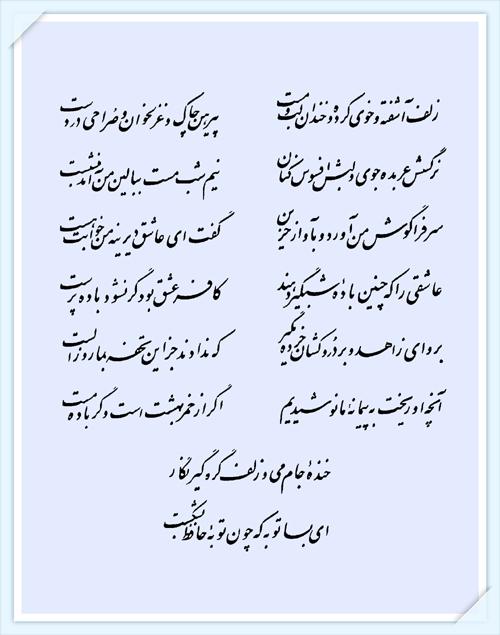 زلف آشفته و خوی کرده و خندان لب و مست پیرهن چاک و غزلخوان و صراحی در دست
نرگسش عربده جوی و لبش افسوس کنان نیم شب مست ببالین من آمد بنشست
سر فرا گوش من آورد و بآواز حزین گفت ای عاشق دیرینه من خوابت هست
عاشقی را که چنین باده شبگیر دهند کافر عشق بود گر نشود باده پرست
برو ای زاهد و بر دردکشان خرده مگیر که ندادند جز این تحفه بما روز الست
آنچه او ریخت به پیمانه ما نوشیدیم اگر از خمر بهشت است و گر باده مست
خنده جام می و زلف گره گیر نگار
ای بسا توبه که چون توبه حافظ بشکست